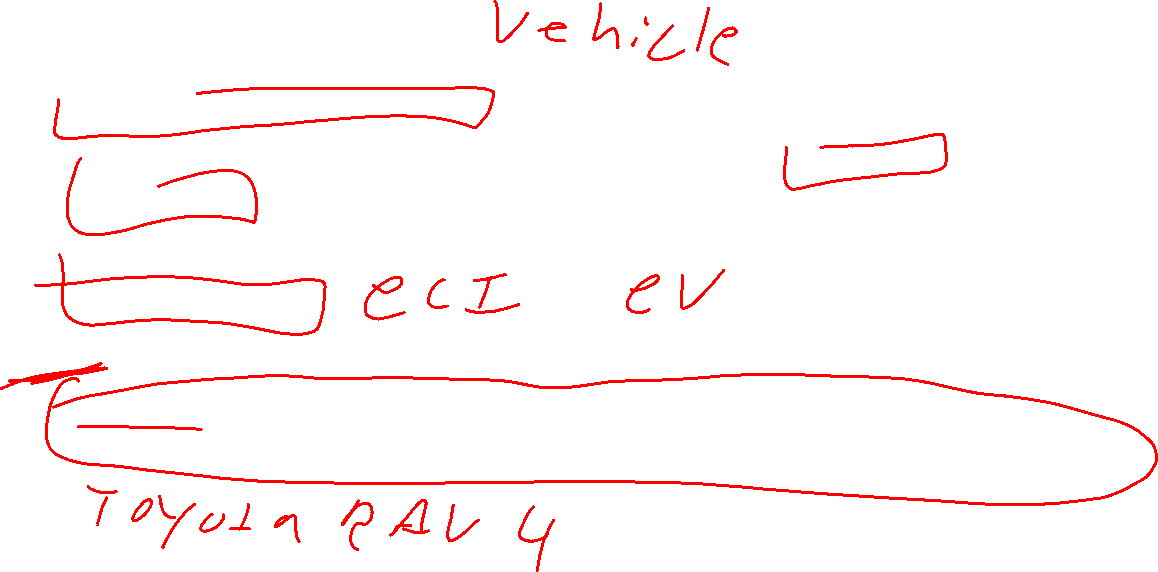 Vehicle
eCI eV
Toyota RAV 4